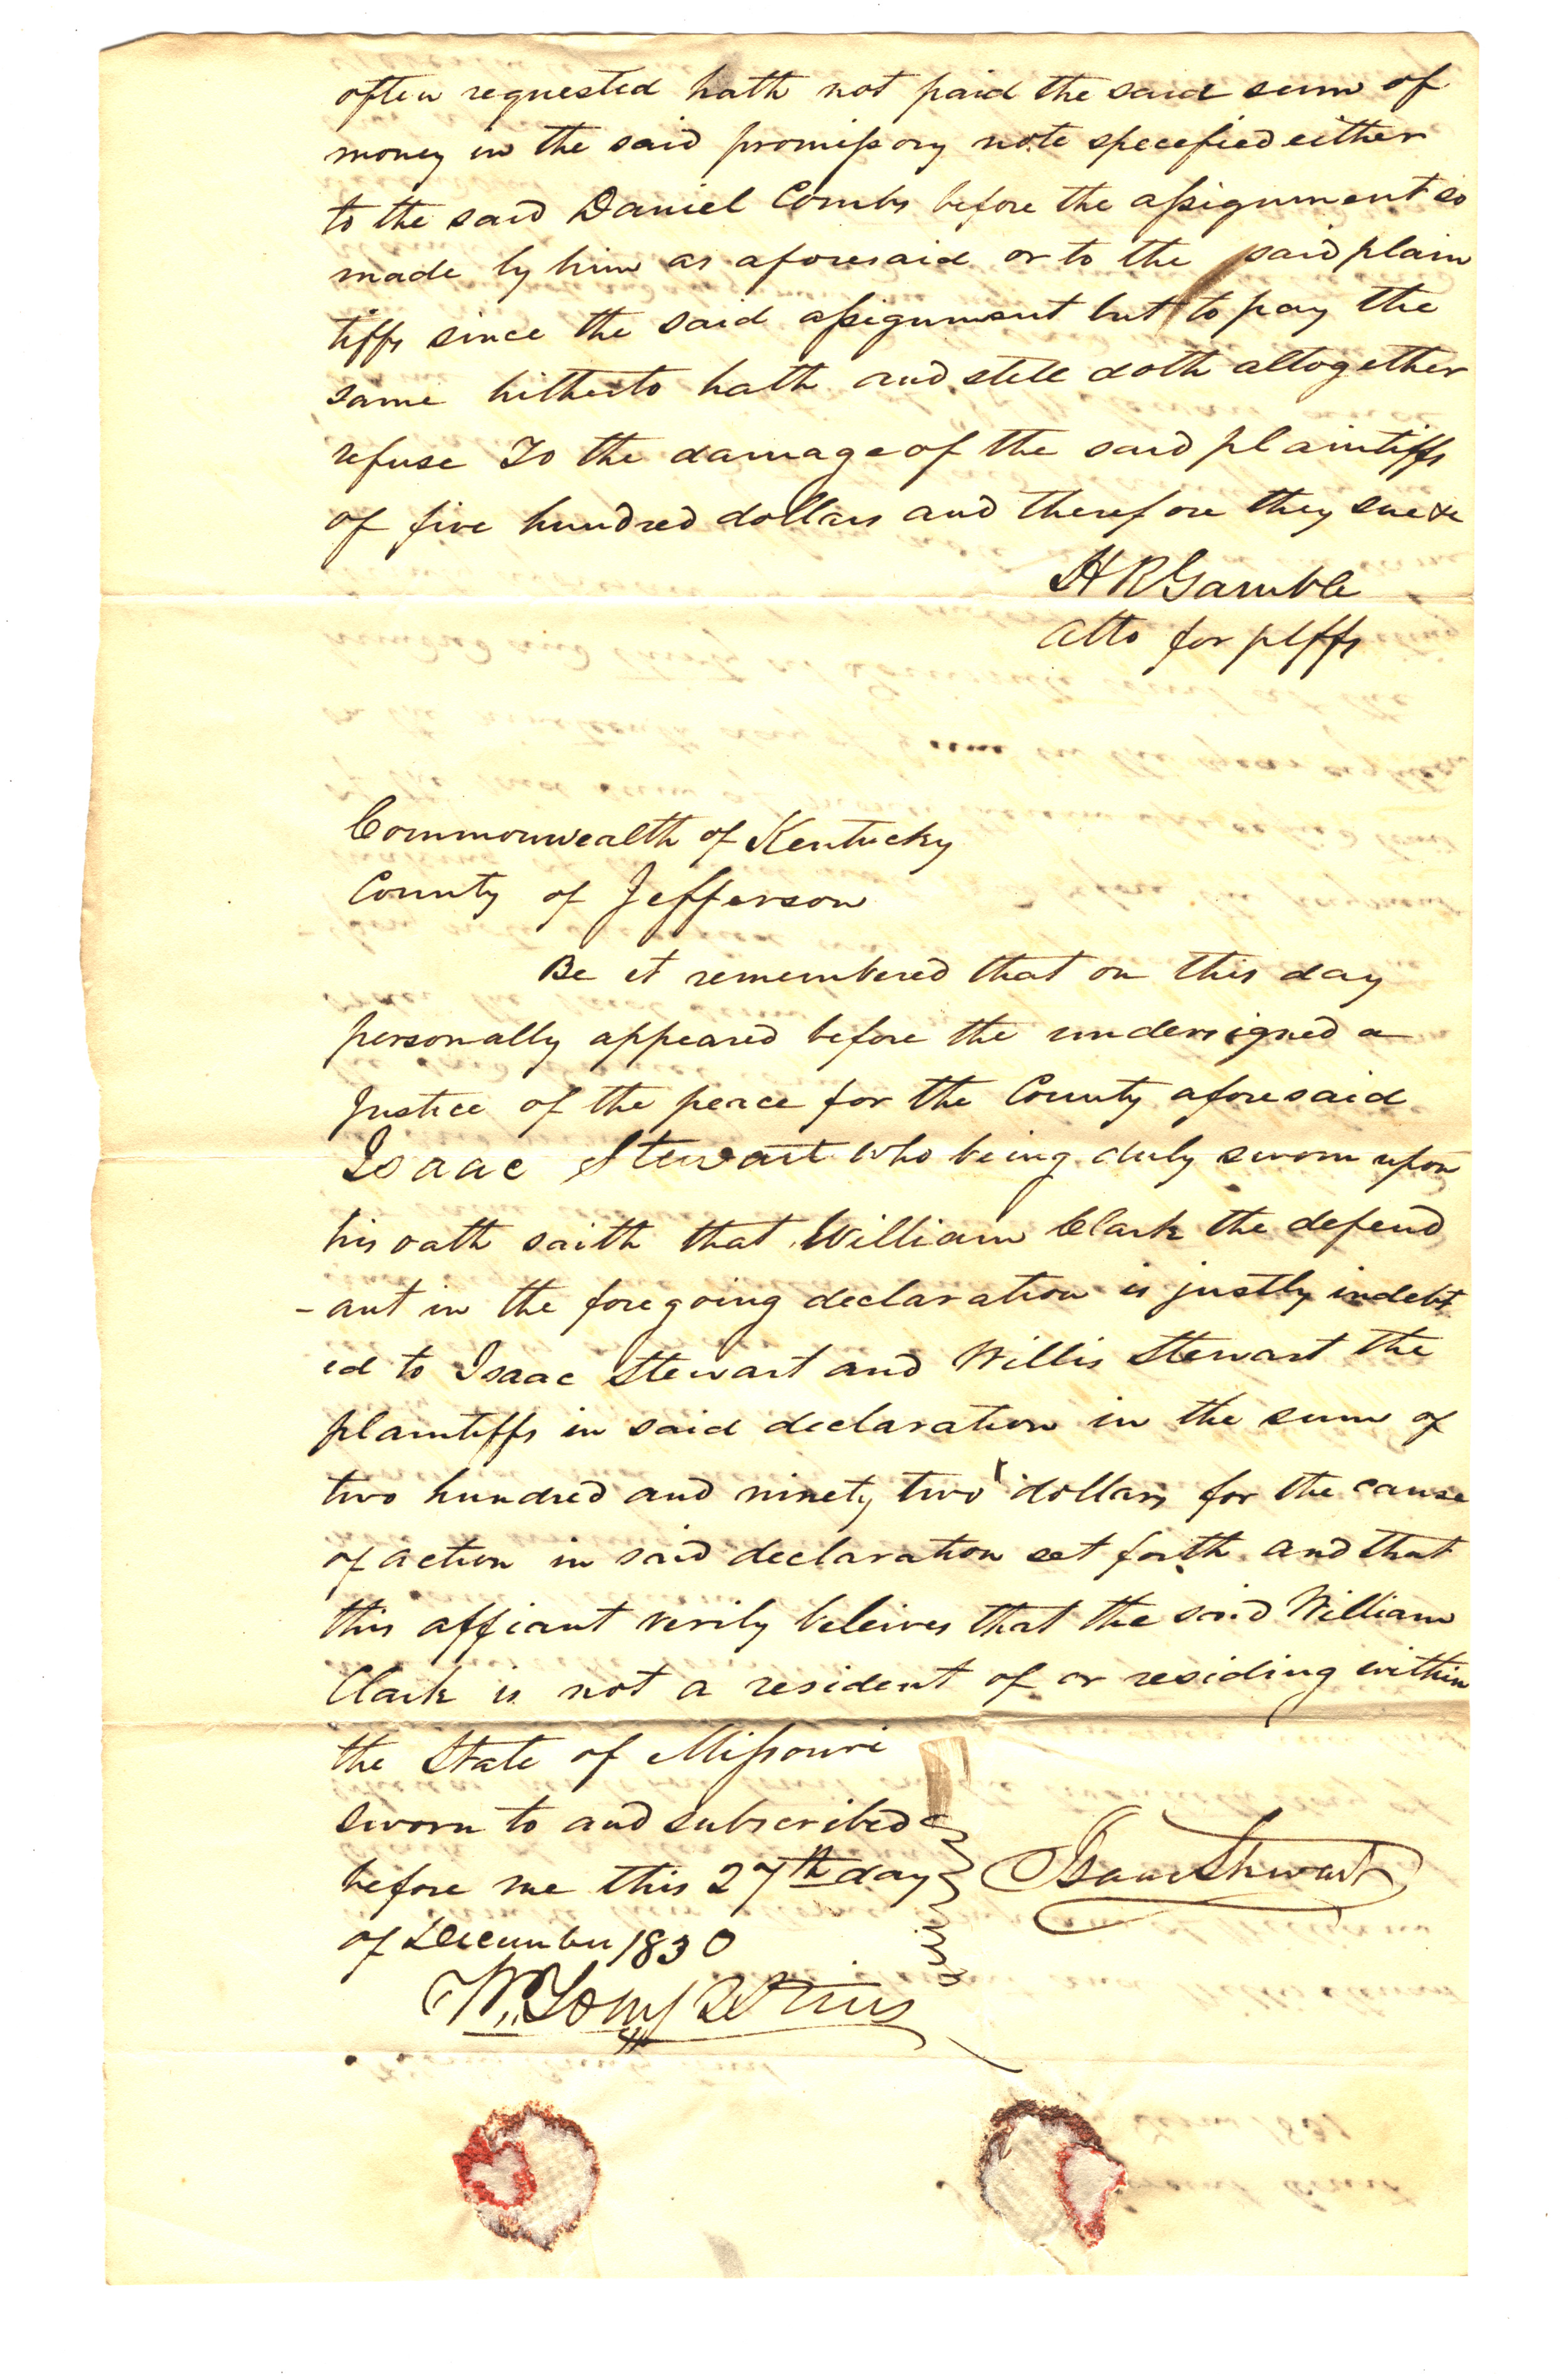 often requested hath not paid the said sum of
money in the said promissory note specified either
to the said Daniel Combs before the assignment so
made by him as aforesaid or to the said plain
tiffs since the said assignment but to pay the
same hitherto hath and still doth altogether
refuse To the damage of the said plaintiffs
of five hundred dollars and therefore they sue &c
H R Gamble
atto for plffs
Commonwealth of Kentucky
County of Jefferson
Be it remembered that on this day
personally appeared before the undersigned a
Justice of the peace for the County aforesaid
Isaac Stewart who being duly sworn upon
his oath saith that William Clark the defend
-ant in the foregoing declaration is justly indebt
ed to Isaac Stewart and Willis Stewart the
plaintiffs in said declaration in the sum of
two hundred and ninety two dollars for the cause
of action in said declaration set forth and that
this affiant verily beleives that the said William
Clark is not a resident of or residing within
the State of Missouri
sworn to and subscribed
before me this 27th day
of December 1830
Isaac Stewart